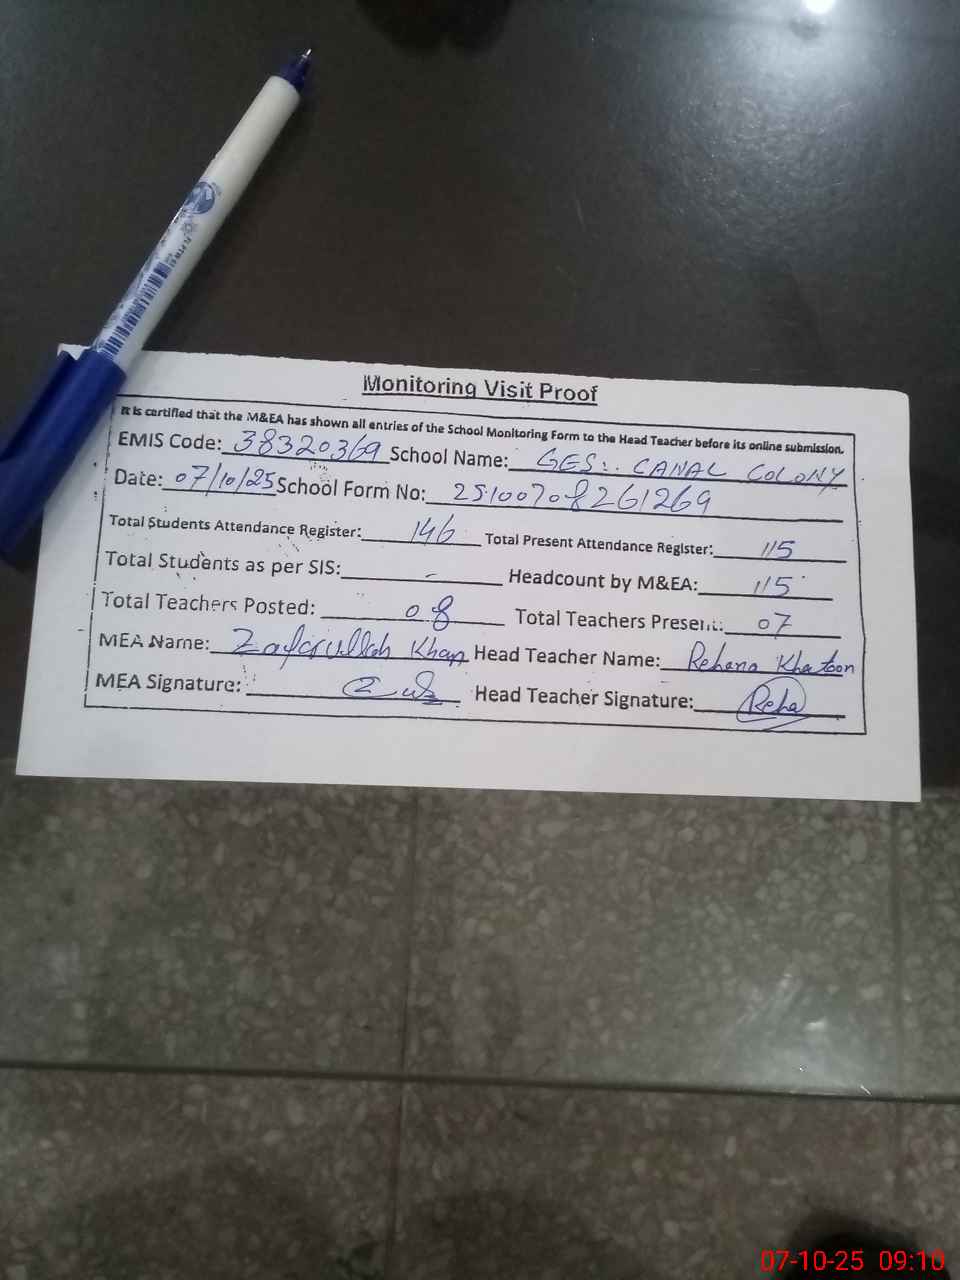 Monitoring Visit Proof
It is certified that the M&EA has shown all entries of the School Monitoring Form to the Head Teacher before its online submission.
EMIS Code: 38320369 School Name: GES:. CANAL COLONY
Date: 07/10/25 School Form No: 25100708261269
Total Students Attendance Register: 146 Total Present Attendance Register: 115
Total Students as per SIS: - Headcount by M&EA: 115
Total Teachers Posted: 08 Total Teachers Present: 07
MEA Name: Zafarullah Khan Head Teacher Name: Rehana Khatoon
MEA Signature: Head Teacher Signature: Reha
07-10-25 09:10